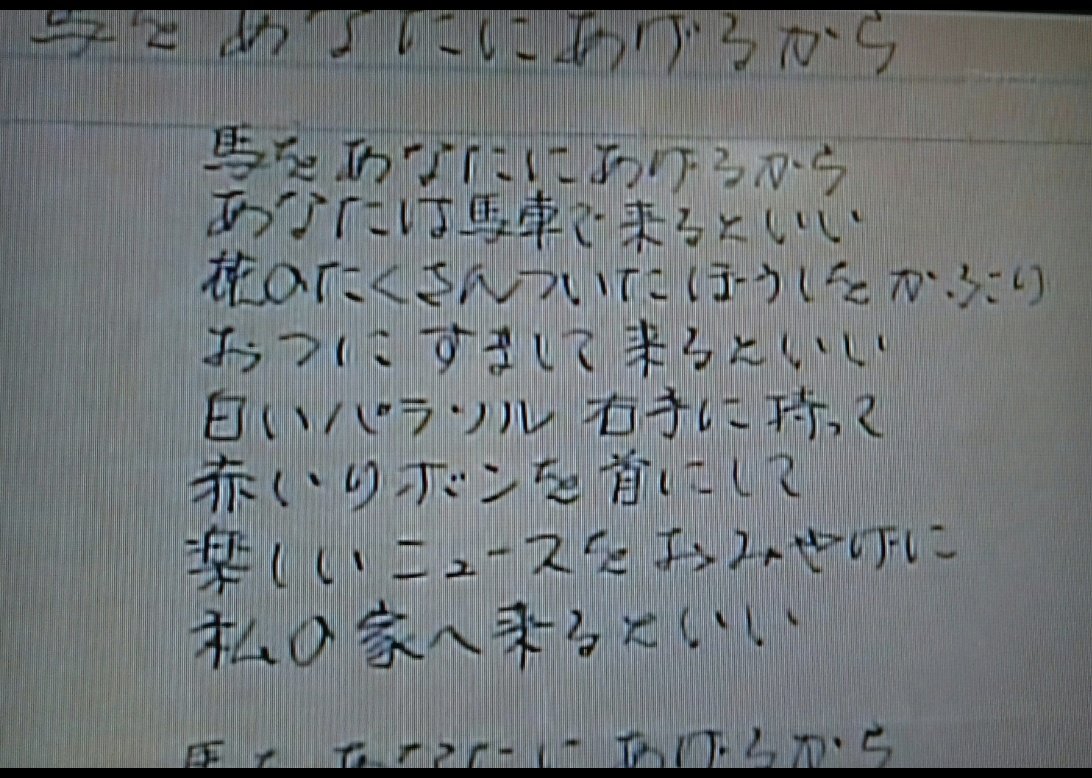 馬をあなたにあげるから
馬をあなたにあげるから
あなたは馬車で来るといい
花のたくさんついたぼうしをかぶり
おつにすまして来るといい
白いパラソル 右手に持って
赤いリボンを首にして
楽しいニュースをおみやげに
私の家へ来るといい
馬をあなたにあげるから